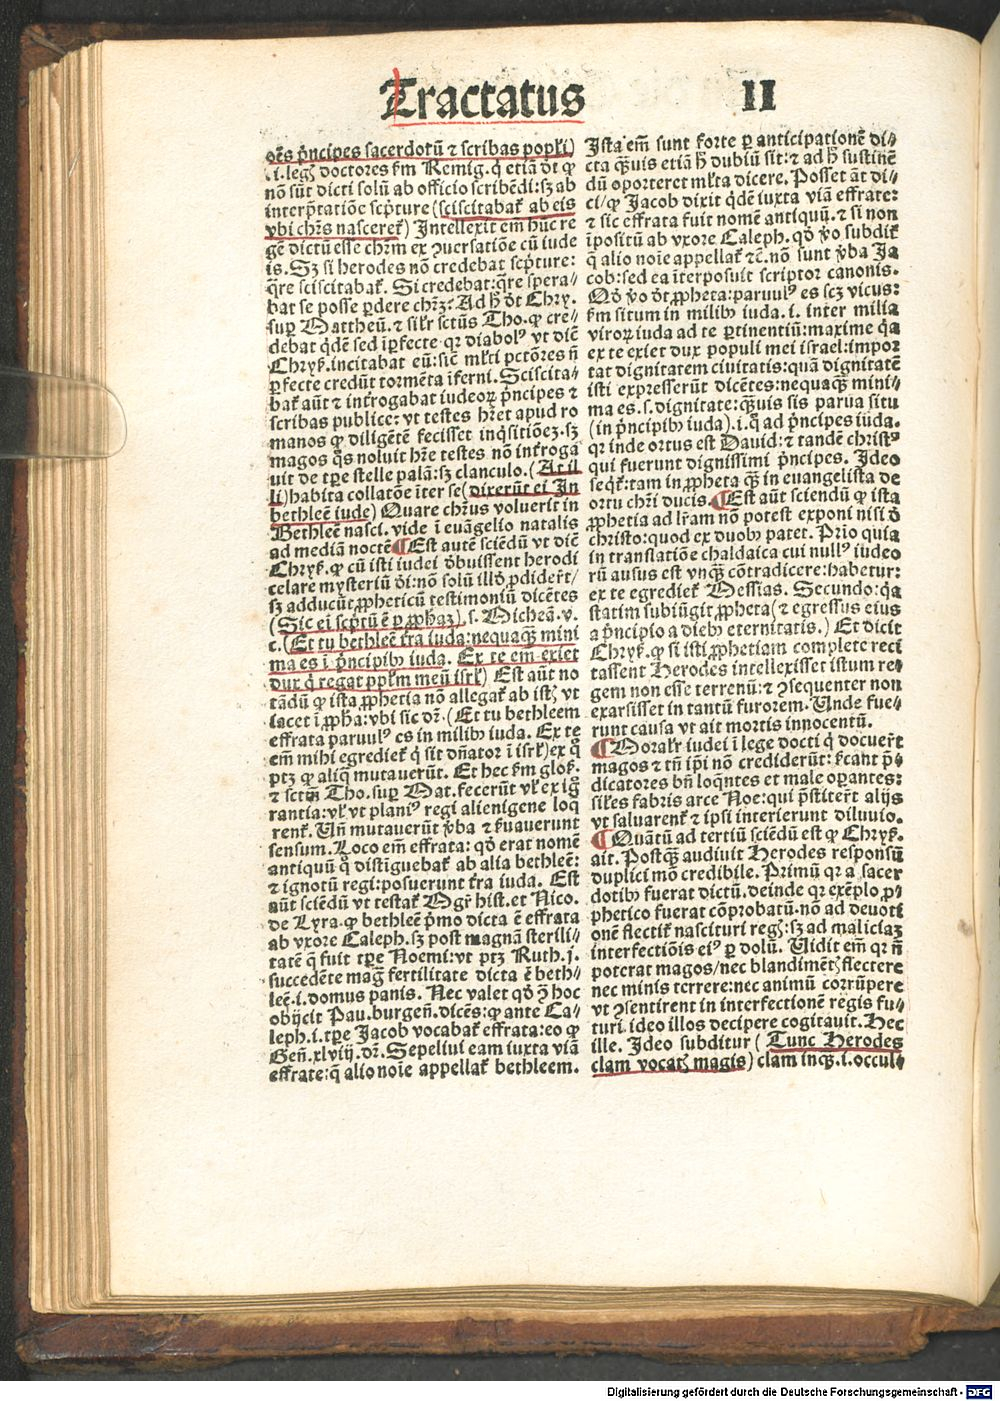 Tractatus II
oēs p̄ncipes sacerdotū ⁊ scribas popl̄i)
.i. legꝭ doctores ẜm Remig. q̄ etiā dr̄ ꝙ
nō sūt dicti solū ab officio scribēdi: sꝫ ab
interp̄tatiōe scp̄ture (sciscitabaꝶ ab eis
vbi chrꝰs nascereꝶ) Intellexit em̄ hūc re
gē dictū esse chrm̄ ex ꝯuersatiōe cū iude
is. Sꝫ si herodes nō credebat scp̄ture:
q̄re sciscitabaꝶ. Si credebat: q̄re spera⸗
bat se posse ꝑdere chrꝫ? Ad ħ dr̄ Chry.
suꝑ Mattheū. ⁊ silꝶ sctūs Tho. ꝙ cre⸗
debat qͥdē sed īꝑfecte qꝛ diabolꝰ vt dic̄
Chryẜ. incitabat eū: sic̄ ml̄ti pctōres n̄
ꝑfecte credūt tormēta īferni. Sciscita⸗
baꝶ aūt ⁊ int̄rogabat iudeoꝝ p̄ncipes ⁊
scribas publice: vt testes hr̄et apud ro
manos ꝙ diligētē fecisset inq̄sitiōeꝫ. sꝫ
magos qͦs noluit hr̄e testes nō int̄roga
uit de tp̄e stelle palā: sꝫ clanculo. (At il
li) habita collatōe īter se (dixerūt ei In
bethleē iude) Quare chrꝰus voluerit in
Bethleē nasci. vide ī euāgelio natalis
ad mediā noctē ¶ Est autē sciēdū vt dic̄
Chryẜ. ꝙ cū isti iudei dͤbuissent herodi
celare mysteriū dei: nō solū illd̓ ꝓdider̄t/
sꝫ adducūt ꝓpheticū testimoniū dicētes
(Sic ei scptū ē ꝑ ꝓphaꝫ) .s. Micheā. v.
c. (Et tu bethleē t̄ra iuda: nequaq̄ꝫ mini
ma es ī p̄ncipibꝰ iuda. Ex te em exiet
dux q̄ regat ppl̄m meū isrl̄) Est aūt no
tādū ꝙ ista ꝓphetia nō allegaꝶ ab istꝭ vt
iacet ī ꝓpha: vbi sic dr̄. (Et tu bethleem
effrata paruulꝰ es in milibꝰ iuda. Ex te
em̄ mihi egredieꝶ q̄ sit dn̄ator ī isrl̄) ex qͦ
ptꝫ ꝙ aliq̄ mutauerūt. Et hec ẜm gloẜ.
⁊ sctm̄ Tho. suꝑ Mat. fecerūt vl̓ ex igͦ
rantia: vl̓ vt planiꝰ regi alienigene loq̄
renꝶ. Vn̄ mutauerūt ꝟba ⁊ ẜuauerunt
sensum. Loco em̄ effrata: qd̓ erat nomē
antiquū qͦ distīguebaꝶ ab alia bethleē:
⁊ ignotū regi: posuerunt t̄ra iuda. Est
aūt sciēdū vt testaꝶ Mgr̄ hist. et Nico.
de Lyra. ꝙ bethleē pͥmo dicta ē effrata
ab vxore Caleph. sꝫ post magnā sterili⸗
tatē q̄ fuit tp̄e Noemi: vt ptꝫ Ruth. j.
succedēte mag̃ fertilitate dicta ē beth⸗
leē .i. domus panis. Nec valet qd̓ ꝯ̄ hoc
obijcit Pau. burgeñ. dicēs: ꝙ ante Ca⸗
leph .i. tp̄e Jacob vocabaꝶ effrata: eo ꝙ
Geñ. xlviij. dr̄. Sepeliui eam iuxta viā
effrate: q̄ alio noīe appellaꝶ bethleem.
Ista em̄ sunt forte ꝑ anticipationē di⸗
cta q̄ꝫuis etiā ħ dubiū sit: ⁊ ad ħ sustinē
dū oporteret ml̄ta dicere. Posset āt di⸗
ci/ ꝙ Jacob dixit qͥdē iuxta viā effrate:
⁊ sic effrata fuit nomē antiquū. ⁊ si non
īpositū ab vxore Caleph. qd̓ ꝟo subdiꝶ
q̄ alio noīe appellaꝶ ⁊c̄. nō sunt ꝟba Ja
cob: sed ea īterposuit scriptor canonis.
Qd̓ ꝟo dr̄ ꝓpheta: paruulꝰ es scꝫ vicus:
ẜm situm in milibꝰ iuda .i. inter milia
viroꝝ iuda ad te ꝑtinentiū: maxime q̄a
ex te exiet dux populi mei israel: impor
tat dignitatem ciuitatis: quā dignitatē
isti expresserūt dicētes: nequaq̄ꝫ mini⸗
ma es .s. dignitate: q̄ꝫuis sis parua situ
(in p̄ncipibꝰ iuda) .i. q̄ ad p̄ncipes iuda.
qꝛ inde ortus est Dauid: ⁊ tandē christꝰ
qui fuerunt dignissimi p̄ncipes. Ideo
seqͥꝶ: tam in ꝓpheta q̄ꝫ in euangelista de
ortu chrī ducis. ¶ Est aūt sciendū ꝙ ista
ꝓphetia ad lr̄am nō potest exponi nisi d̓
christo: quod ex duobꝰ patet. Prīo quia
in translatiōe chaldaica cui nullꝰ iudeo
rū ausus est vnq̄ꝫ cōtradicere: habetur:
ex te egredieꝶ Messias. Secundo: q̄a
statim subiūgit ꝓpheta (⁊ egressus eius
a p̄ncipio a diebꝰ eternitatis.) Et dicit
Chryẜ. ꝙ si isti ꝓphetiam complete reci
tassent Herodes intellexisset istum re⸗
gem non esse terrenū: ⁊ ꝯsequenter non
exarsisset in tantū furorem. Unde fue⸗
runt causa vt ait mortis innocentū.
¶ Moralꝶ iudei ī lege docti q̄ docuer̄t
magos ⁊ tn̄ ip̄i nō crediderūt: ẜcant p̄⸗
dicatores bn̄ loq̄ntes et male oꝑantes:
siles fabris arce Noe: qui p̄stiter̄t alijs
vt saluarenꝶ ⁊ ipsi interierunt diluuio.
¶ Quātū ad tertiū sciēdū est ꝙ Chryẜ.
ait. Postq̄ꝫ audiuit Herodes responsū
duplici mō credibile. Primū qꝛ a sacer
dotibꝰ fuerat dictū. deinde qꝛ exēplo ꝓ⸗
phetico fuerat cōprobatū. nō ad deuoti
onē flectiꝶ nascituri regꝭ: sꝫ ad maliciaꝫ
interfectiōis eiꝰ ꝑ dolū. Vidit em̄ qꝛ n̄
poterat magos/ nec blandimētꝭ flectere
nec minis terrere: nec animū corrūpere
vt ꝯsentirent in interfectionē regis fu⸗
turi. ideo illos decipere cogitauit. Hec
ille. Ideo subditur (Tunc Herodes
clam vocatꝭ magis) clam inq̄ꝫ .i. occul⸗
Digitalisierung gefördert durch die Deutsche Forschungsgemeinschaft - DFG